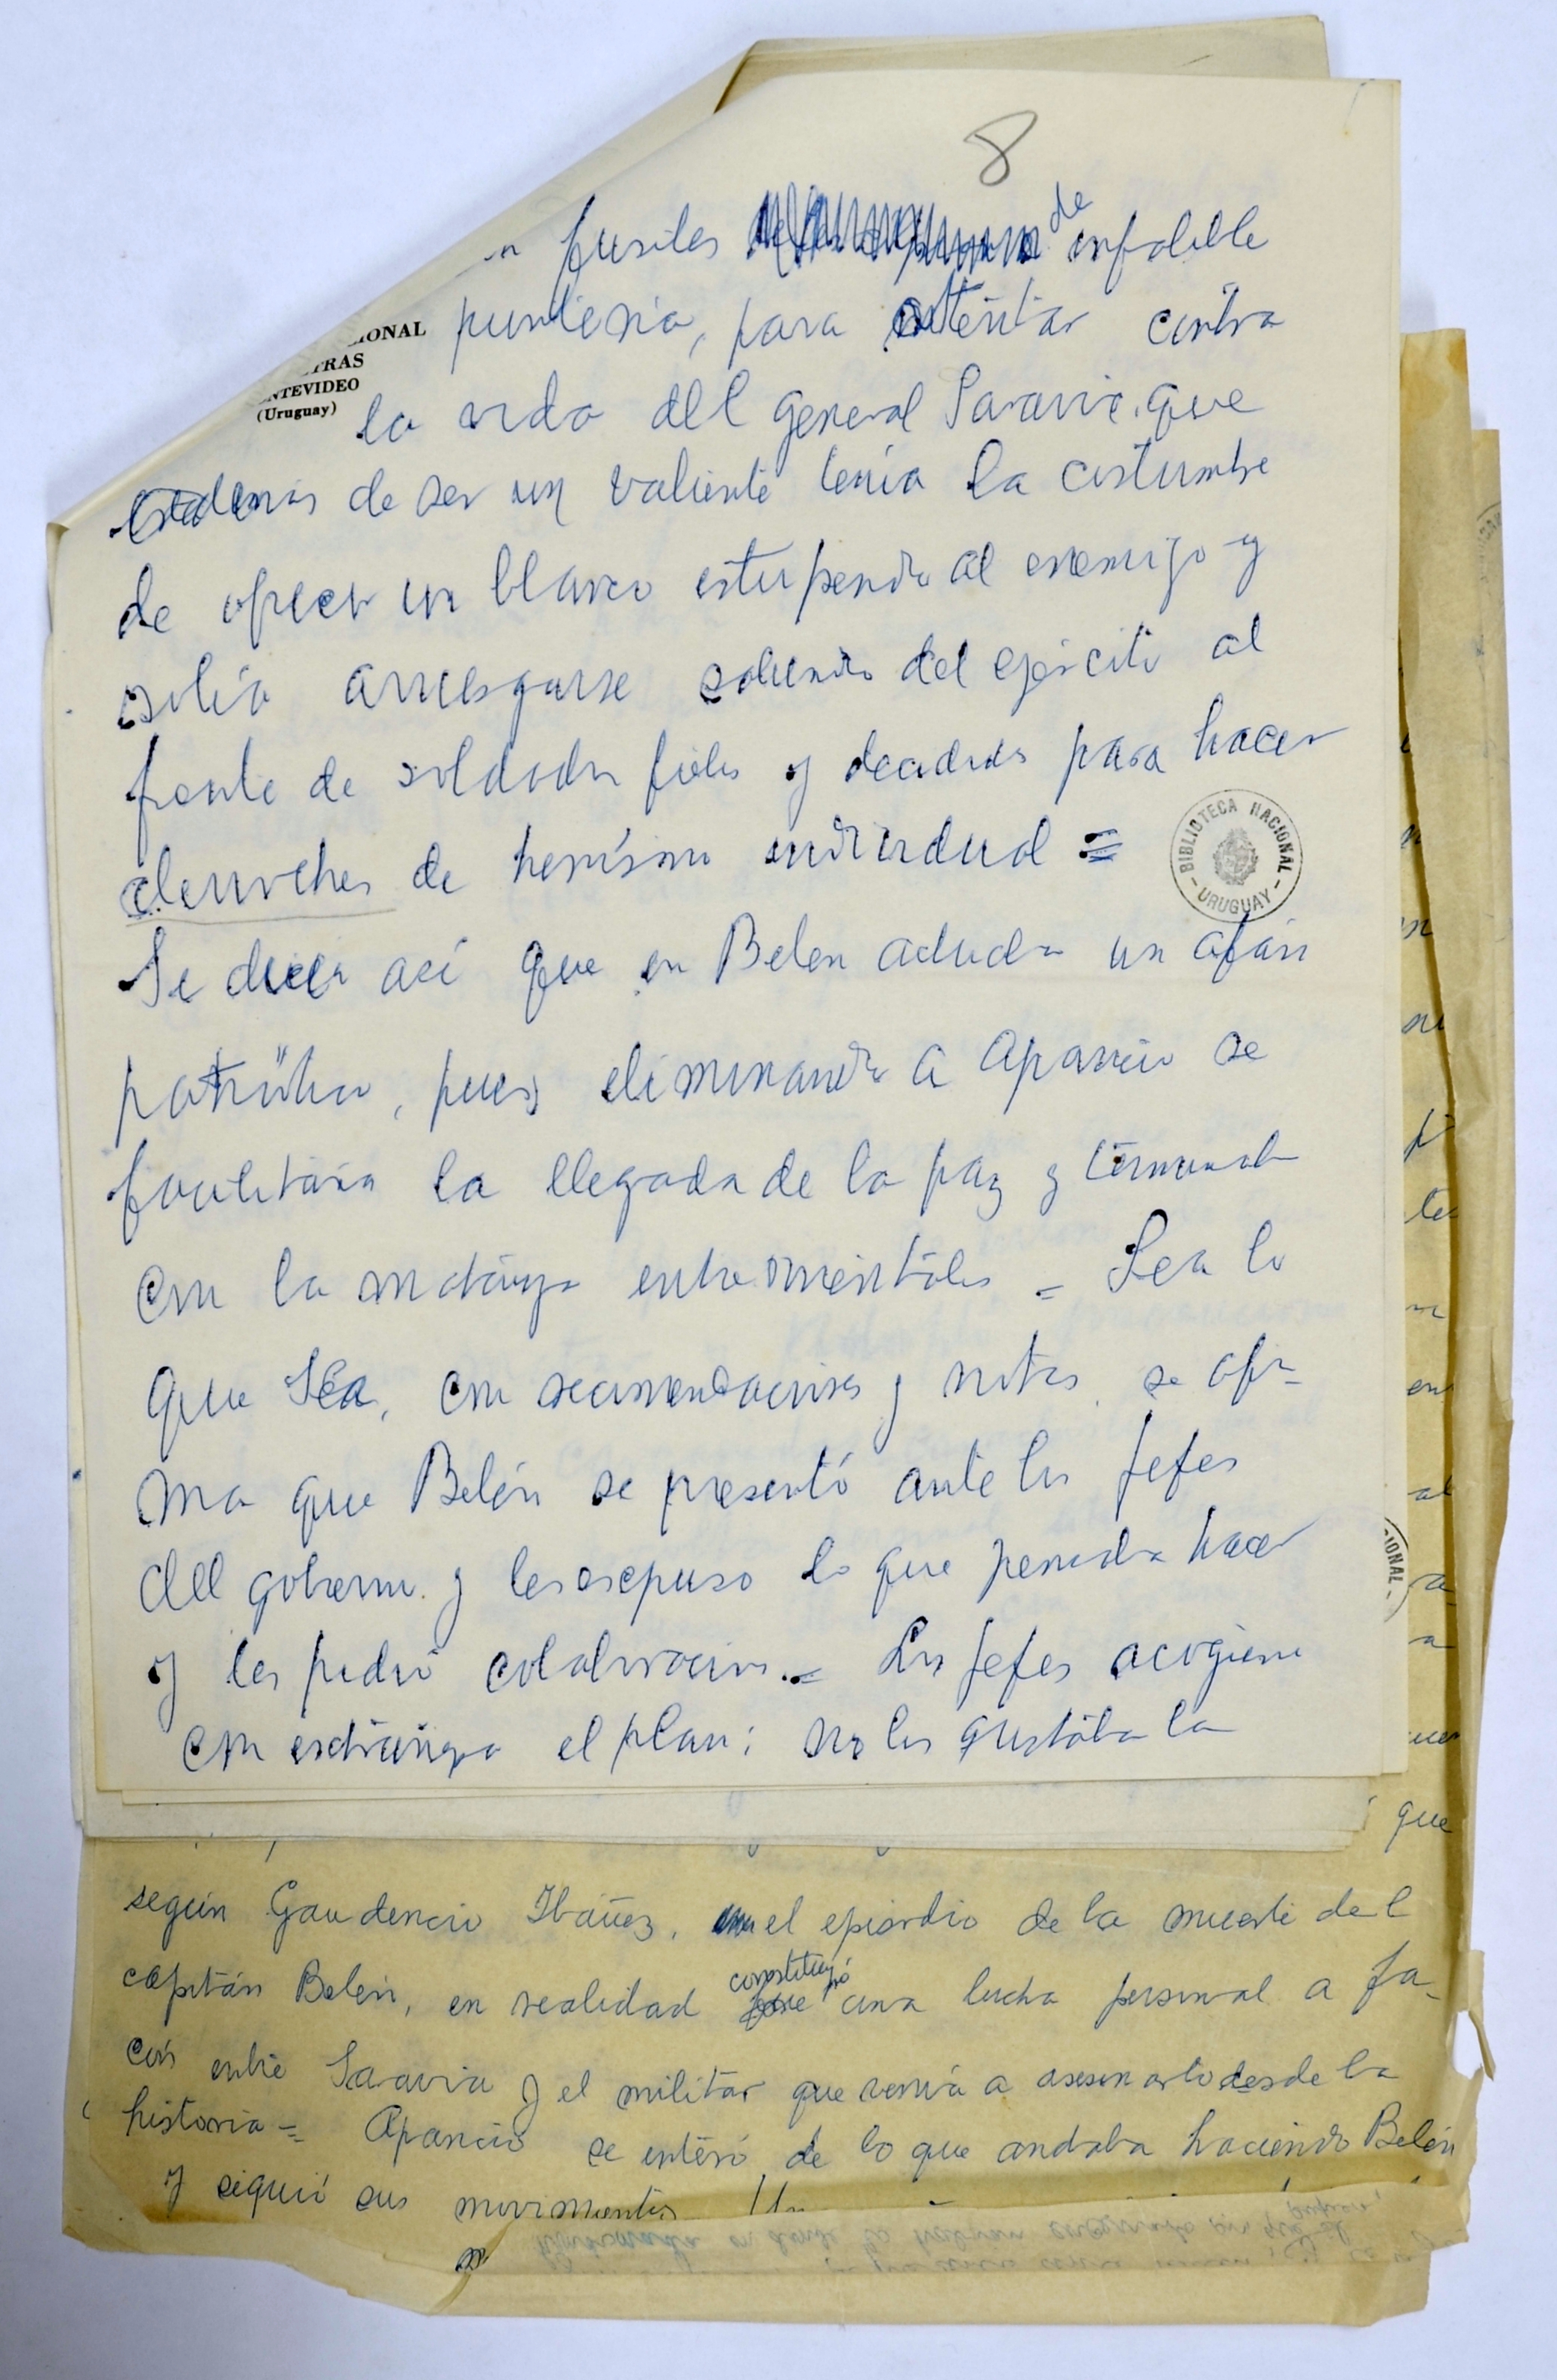 8
fusiles de infalible
puntería, para atentar contra
la vida del general Saravia que
además de ser un valiente tenía la costumbre
de ofrecer un blanco estupendo al enemigo y
solía arriesgarse saliendo del ejército al
frente de soldados fieles y decididos para hacer
derroches de heroísmo individual =
Se dice así que en Belen adudo un afán
patriótico, pues eliminando a Aparicio se
facilitaría la llegada de la paz y terminaba
con la matanza entre orientales = Sea lo
que sea, con recomendaciones y notas se afir=
ma que Belén se presentó ante los jefes
del gobierno y les expuso lo que pensaba hacer
y les pidió colaboracion. = Los jefes acogieron
con extrañeza el plan; no les gustaba la
IONAL
TRAS
NTEVIDEO
(Uruguay)
BIBLIOTECA NACIONAL
- URUGUAY -
IONAL -
que
según Gaudencio Ibáñez, en el episodio de la muerte del
capitán Belén, en realidad constituyó una lucha personal a fa-
cón entre Saravia y el militar que venía a asesinarlo desde la
historia = Aparicio se enteró de lo que andaba haciendo Belén
y siguió sus movimientos